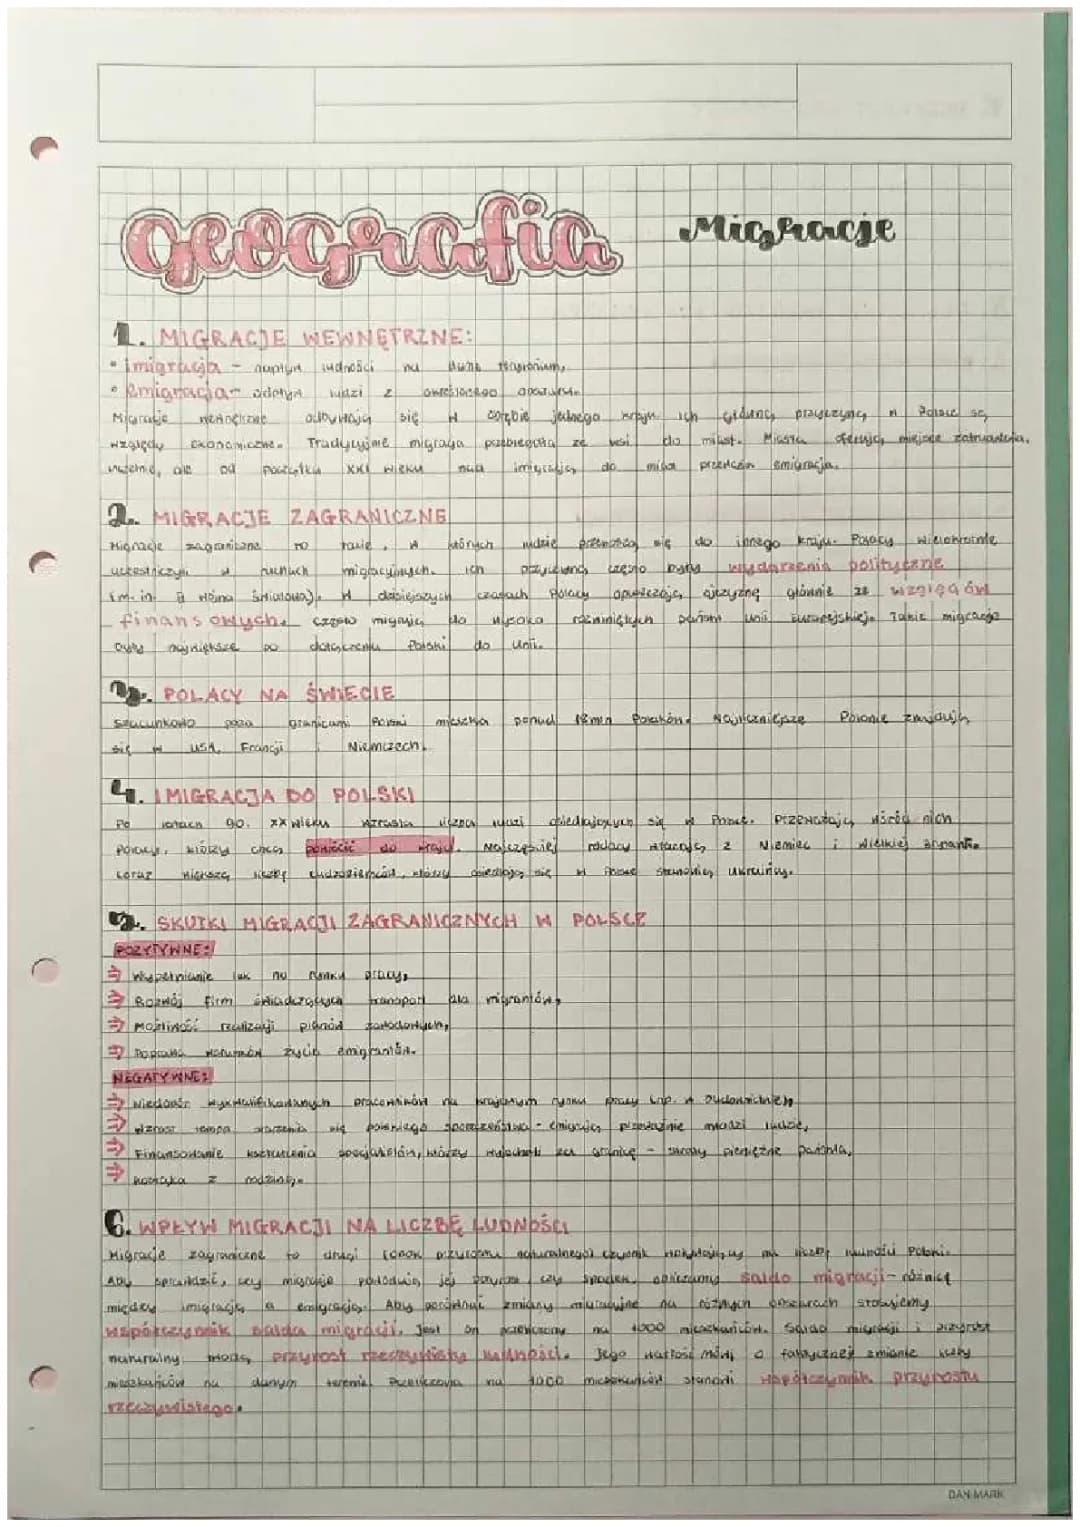 geografia Migracje
1. MIGRACJE WEWNĘTRZNE:
• imigracja - napływ ludności na dane terytorium,
• Emigracja - odpływ ludzi z określonego obszaru.
Migracje wewnętrzne odbywają się w obrębie jednego kraju. Ich główną przyczyną w Polsce są
względy ekonomiczne. Tradycyjnie migracja przebiegała ze wsi do miast. Miasta oferują miejsce zatrudnienia,
uczelnie, ale od początku XXI wieku nad imigracją do miast przeważa emigracja.
2. MIGRACJE ZAGRANICZNE
Migracje zagraniczne to takie, w których ludzie przenoszą się do innego kraju. Polacy wielokrotnie
uczestniczyli w ruchach migracyjnych. Ich przyczyną często były wydarzenia polityczne
(m. in. II wojna światowa). W dzisiejszych czasach Polacy opuszczają ojczyznę głównie ze względów
finansowych. Często migrują do wysoko rozwiniętych państw Unii Europejskiej. Takie migracje
były największe po dołączeniu Polski do Unii.
3. POLACY NA ŚWIECIE
Szacunkowo poza granicami Polski mieszka ponad 18 mln Polaków. Najliczniejsze Polonie znajdują
się w USA, Francji i Niemczech.
4. IMIGRACJA DO POLSKI
Po latach 90. XX wieku wzrasta liczba ludzi osiedlających się w Polsce. Przeważają wśród nich
Polacy, którzy chcą powrócić do kraju. Najczęściej rodacy wracają z Niemiec i Wielkiej Brytanii.
Coraz większą liczbę cudzoziemców, którzy osiedlają się w Polsce stanowią Ukraińcy.
5. SKUTKI MIGRACJI ZAGRANICZNYCH W POLSCE
POZYTYWNE:
⇒ Wypełnianie luk na rynku pracy,
⇒ Rozwój firm świadczących transport dla migrantów,
⇒ Możliwość realizacji planów zawodowych,
⇒ Poprawa warunków życia emigrantów.
NEGATYWNE:
⇒ Niedobór wykwalifikowanych pracowników na krajowym rynku pracy (np. w budownictwie),
⇒ Wzrost tempa starzenia się polskiego społeczeństwa - emigrują przeważnie młodzi ludzie,
⇒ Finansowanie kształcenia specjalistów, którzy wyjechali za granicę - straty pieniężne państwa,
⇒ Rozłąka z rodziną.
6. WPŁYW MIGRACJI NA LICZBĘ LUDNOŚCI
Migracje zagraniczne to drugi (obok przyrostu naturalnego) czynnik wpływający na liczbę ludności Polski.
Aby sprawdzić, czy migracje powodują jej przyrost czy spadek, obliczamy saldo migracji - różnicę
między imigracją a emigracją. Aby porównać zmiany migracyjne na różnych obszarach stosujemy
współczynnik salda migracji. Jest on przeliczony na 1000 mieszkańców. Saldo migracji i przyrost
naturalny tworzą przyrost rzeczywisty ludności. Jego wartość mówi o faktycznej zmianie liczby
mieszkańców na danym terenie. Przeliczona na 1000 mieszkańców stanowi współczynnik przyrostu
rzeczywistego.
DAN-MARK